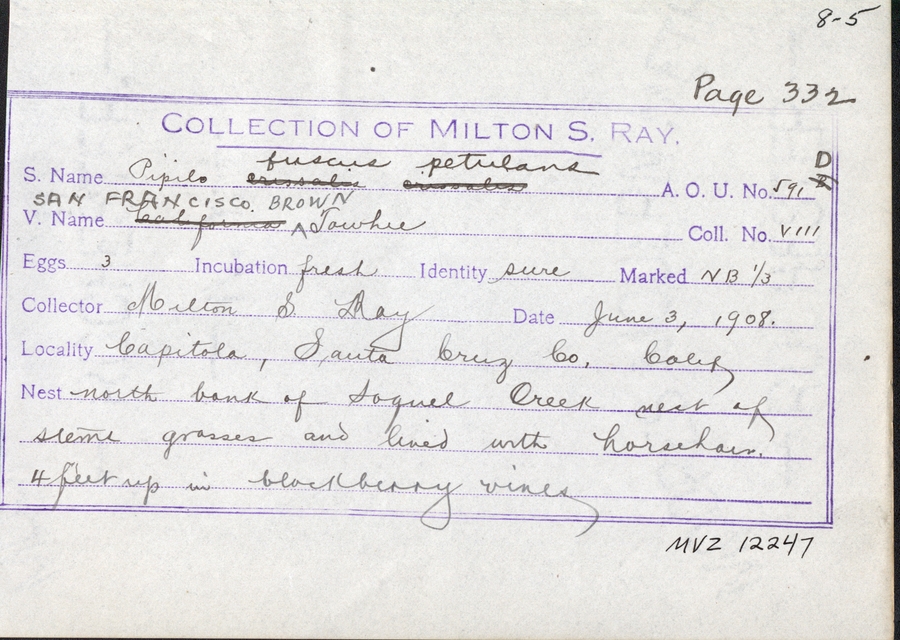 8-5
Page 332
COLLECTION OF MILTON S. RAY.
fuscus petulans
S. Name Pipilo crissalis crissalis A. O. U. No. 591 D
SAN FRANCISCO BROWN
V. Name California ^ Towhee Coll. No. VIII
Eggs 3 Incubation fresh Identity sure Marked NB 1/3
Collector Milton S. Ray Date June 3, 1908.
Locality Capitola, Santa Cruz Co. Calif
Nest north bank of Soquel Creek nest of
stems grasses and lined with horsehair.
4 feet up in blackberry vines
MVZ 12247